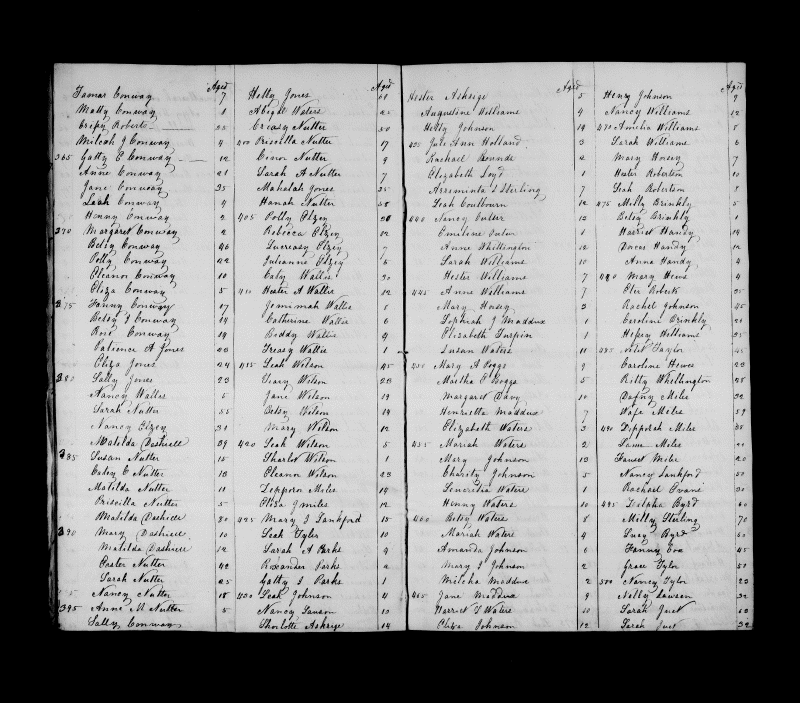 Aged
Tamar Conway 7
Matty Conway 1
Crispy Roberts 25
Milcah J Conway 4
365 Gatty E Conway 12
Anne Conway 21
Jane Conway 35
Leah Conway 4
Henny Conway 2
370 Margaret Conway 2
Betsy Conway 46
Polly Conway 42
Eleanor Conway 10
Eliza Conway 5
375 Fanny Conway 17
Betsy J Conway 14
Rose Conway 19
Patience A Jones 23
Eliza Jones 24
380 Sally Jones 23
Nancy Walter 5
Sarah Nutter 55
Nancy Elzey 31
Matilda Dashiell 39
385 Susan Nutter 15
Caley C Nutter 13
Matilda Nutter 11
Priscilla Nutter 5
Matilda Dashiell 80
390 Mary Dashiell 10
Matilda Dashiell 12
Easter Nutter 42
Sarah Nutter 25
Nancy Nutter 18
395 Anne M Nutter 5
Sally Conway
Aged
Hetty Jones
Abigal Waters 25
Creasy Nutter 50
400 Priscilla Nutter 17
Cenor Nutter 9
Sarah A Nutter 7
Mahalah Jones 25
Hanah Nutter 58
405 Polly Elzey 20
Rebecca Elzey 12
Lucreasy Elzey 7
Julieanne Elzey 5
Caty Wallis 30
410 Hester A Wallis 12
Jemimiah Wallis 8
Catherine Wallis 6
Biddy Wallis 4
Treasy Wallis 1
415 Leah Wilson 45
Tracy Wilson 23
Jane Wilson 19
Betsy Wilson 14
Mary Wilson 12
420 Leah Wilson 5
Sharlot Wilson 1
Eleanor Wilson 23
Deppora Miles 14
Eliza J Miles 12
425 Mary J Lankford 15
Leah Tyler 10
Sarah A Parks 4
Roxeander Parks 2
Gatty J Parks 1
430 Leah Johnson 4
Nancy Lawson 10
Sharlotte Askridge 14
Aged
Hester Askridge 5
Augustine Williams 4
Hetty Johnson 19
435 Jule Ann Holland 3
Rachael Bounds 2
Elizabeth Loyd 1
Arraminta J Sterling 7
Leah Coulbourn 12
440 Nancy Cutler 13
Emiline 1
Anne Whittington 12
Sarah Williams 10
Hester Williams 7
445 Anne Williams 7
Mary Horsey 3
Sophiah J Maddux 1
Elizabeth Turpin 1
Susan Waters 11
450 Mary A Boggs 9
Martha E Boggs 5
Margaret Davy 10
Henrietta Maddux 7
Elizabeth Waters 3
455 Mariah Waters 2
Mary Johnson 13
Charity Johnson 5
Leneretia Waters 1
Henny Waters 10
460 Betsy Waters 8
Mariah Waters 4
Amanda Johnson 6
Mary J Johnson 2
Milcha Maddux 2
465 Jane Maddux 9
Harriet J Waters 10
Eliza Johnson 12
Aged
Henny Johnson 9
Nancy Williams 12
470 Amelia Williams 8
Sarah Williams 6
Mary Horsey 9
Hester Robertson 10
Leah Robertson 3
475 Milly Brinkly 5
Betsy Brinkly 1
Harriet Handy 14
Dorcas Handy 12
Anna Handy 4
480 Mary Hews 4
Eler Roberts 35
Rachel Johnson 45
Caroline Brinkly 21
Hessey Williams 35
485 Taylor 45
Caroline Hewes 23
Kitty Whittington 28
Dafny Miles 32
Wafe Miles 59
490 Depporah Miles 38
Miles 21
Miles 20
Nancy Lankford 50
Rachael Evans 30
495 Byrd 60
Milly Sterling 70
Lucy Byrd 50
Fanny Cox 45
Grace Tyler 50
500 Nancy Tyler 23
Nelly Lawson 32
Sarah Just 13
Sarah Just 32